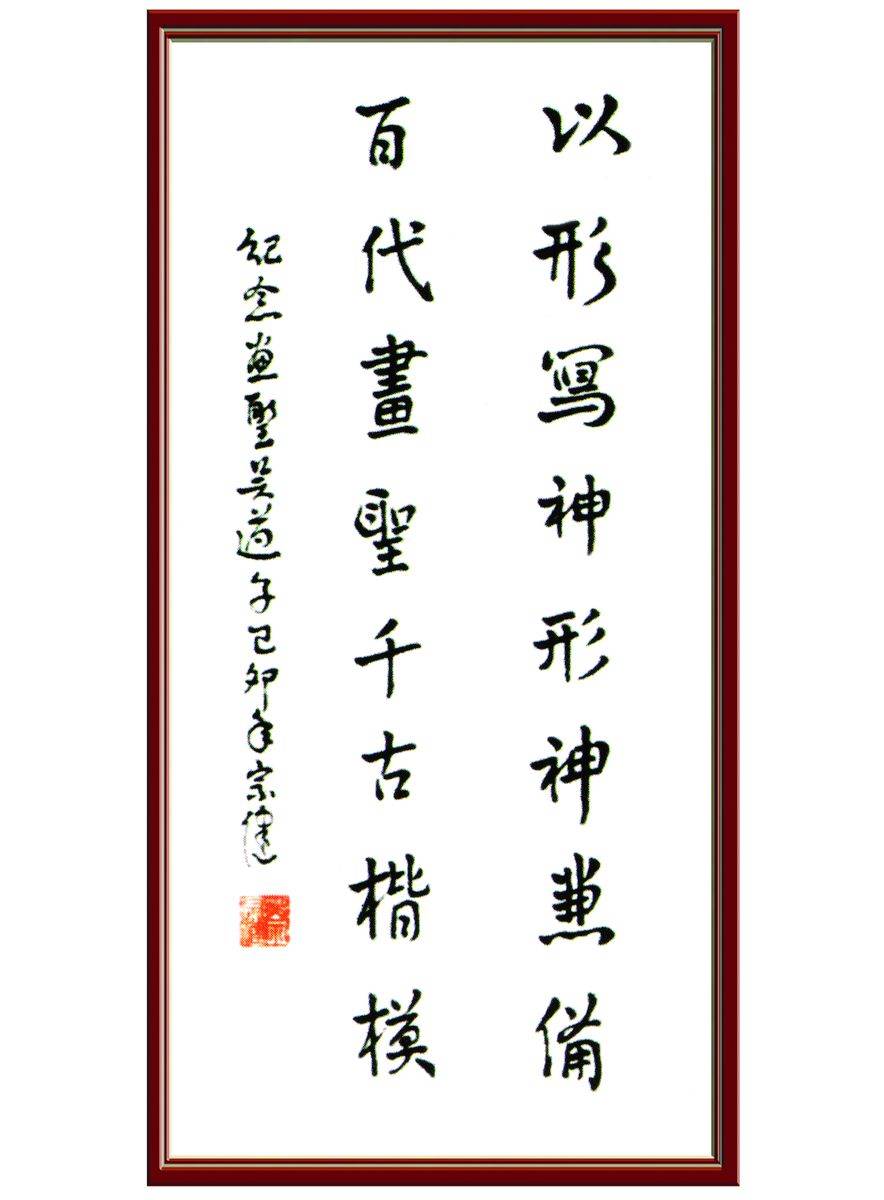 以形寫神形神兼備
百代畫聖千古楷模
紀念畫聖吴道子己卯年宗健